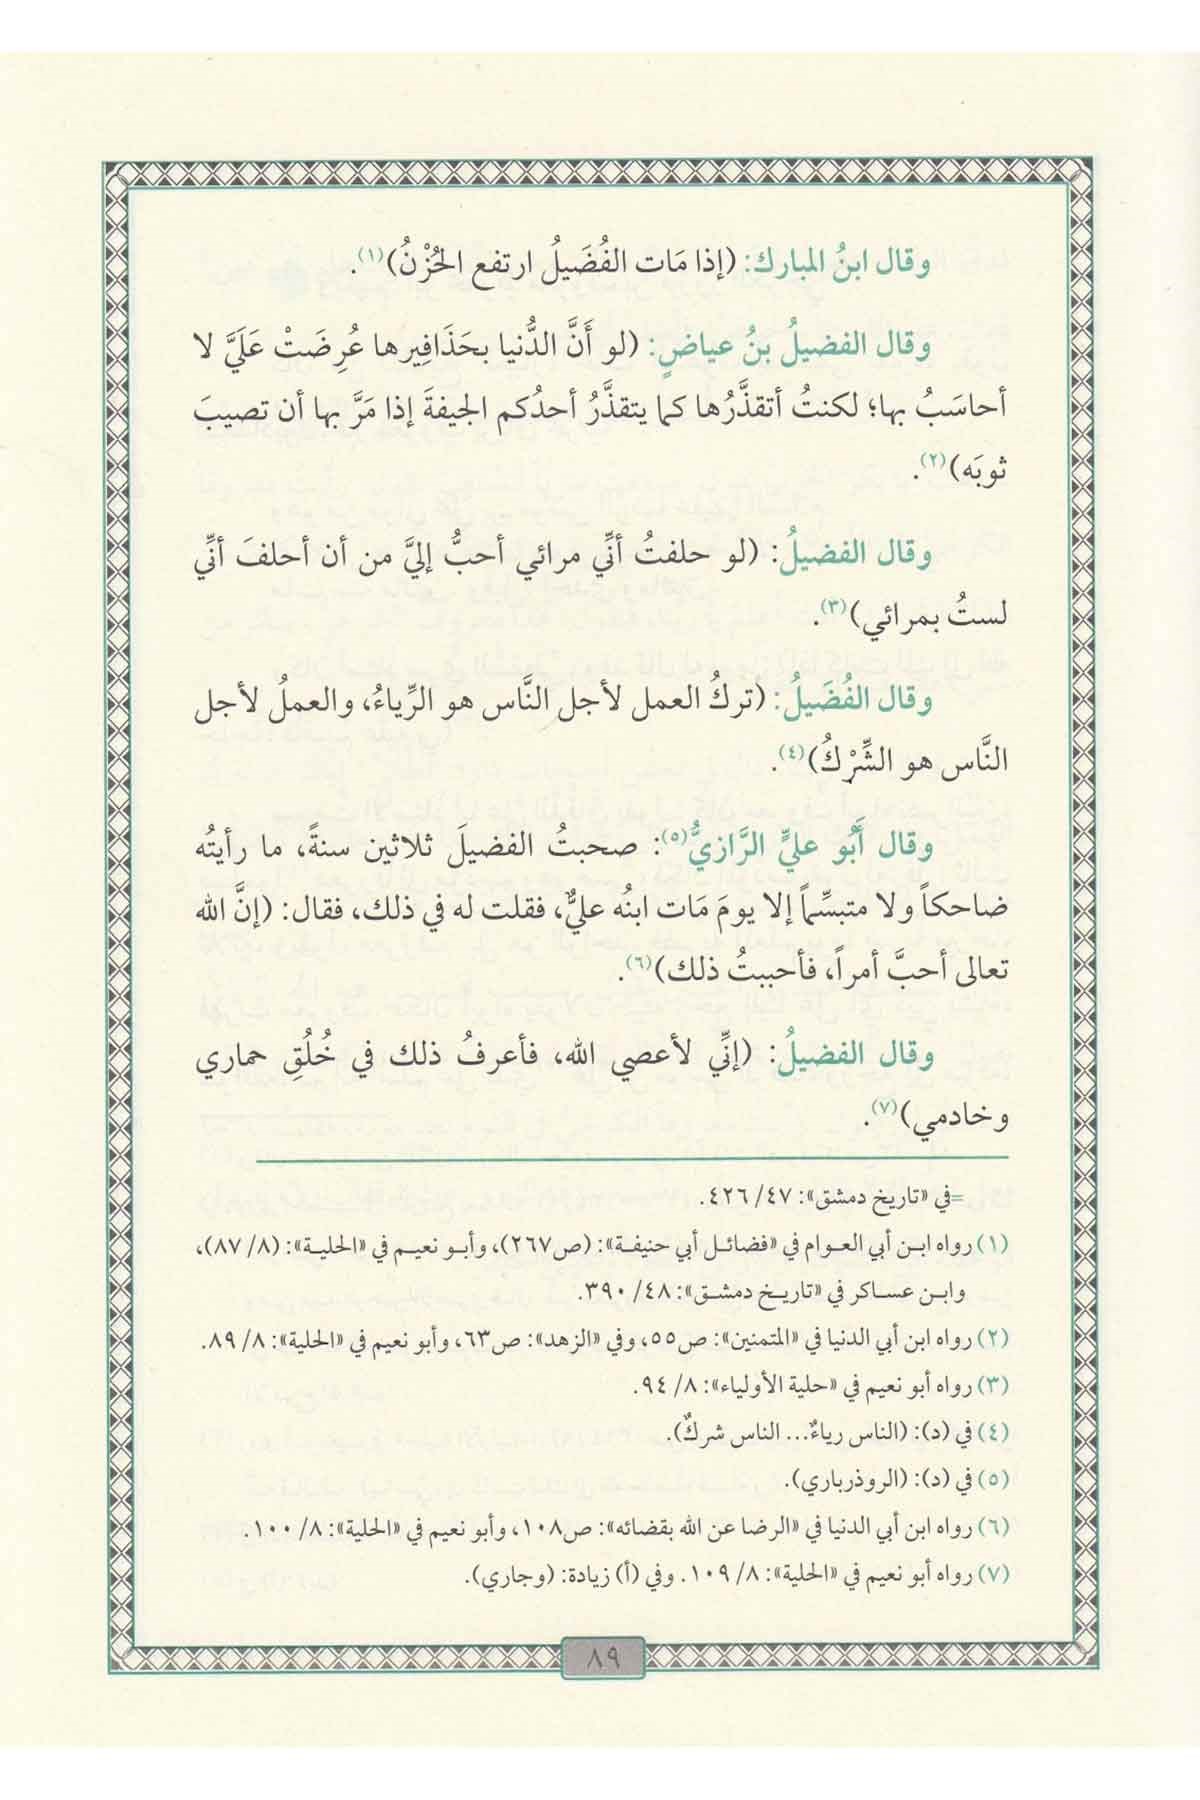 وقال ابنُ المبارك: (إذا مَات الفُضَيلُ ارتفع الحُزْنُ)(١).
وقال الفضيلُ بنُ عياضٍ: (لو أَنَّ الدُّنيا بحَذَافِيرها عُرِضَتْ عَلَيَّ لا
أحاسَبُ بها؛ لكنتُ أتقذَّرُها كما يتقذَّرُ أحدُكم الجيفةَ إذا مَرَّ بها أن تصيبَ
ثوبَه)(٢).
وقال الفضيلُ: (لو حلفتُ أنِّي مرائي أحبُّ إليَّ من أن أحلفَ أنِّي
لستُ بمرائي)(٣).
وقال الفُضَيلُ: (تركُ العمل لأجل النَّاس هو الرِّياءُ، والعملُ لأجل
النَّاس هو الشِّرْكُ)(٤).
وقال أَبُو عليٍّ الرَّازيُّ(٥): صحبتُ الفضيلَ ثلاثين سنةً، ما رأيتُه
ضاحكاً ولا متبسِّماً إلا يومَ مَات ابنُه عليٌّ، فقلت له في ذلك، فقال: (إنَّ الله
تعالى أحبَّ أمراً، فأحببتُ ذلك)(٦).
وقال الفضيلُ: (إنِّي لأعصي الله، فأعرفُ ذلك في خُلُقِ حماري
وخادمي)(٧).
=في «تاريخ دمشق»: ٤٧/ ٤٢٦.
(١) رواه ابن أبي العوام في «فضائل أبي حنيفة»: (ص٢٦٧)، وأبو نعيم في «الحلية»: (٨/ ٨٧)،
وابن عساكر في «تاريخ دمشق»: ٤٨/ ٣٩٠.
(٢) رواه ابن أبي الدنيا في «المتمنين»: ص٥٥، وفي «الزهد»: ص٦٣، وأبو نعيم في «الحلية»: ٨/ ٨٩.
(٣) رواه أبو نعيم في «حلية الأولياء»: ٨/ ٩٤.
(٤) في (د): (الناس رياءٌ... الناس شركٌ).
(٥) في (د): (الروذرباري).
(٦) رواه ابن أبي الدنيا في «الرضا عن الله بقضائه»: ص١٠٨، وأبو نعيم في «الحلية»: ٨/ ١٠٠.
(٧) رواه أبو نعيم في «الحلية»: ٨/ ١٠٩. وفي (أ) زيادة: (وجاري).
٨٩